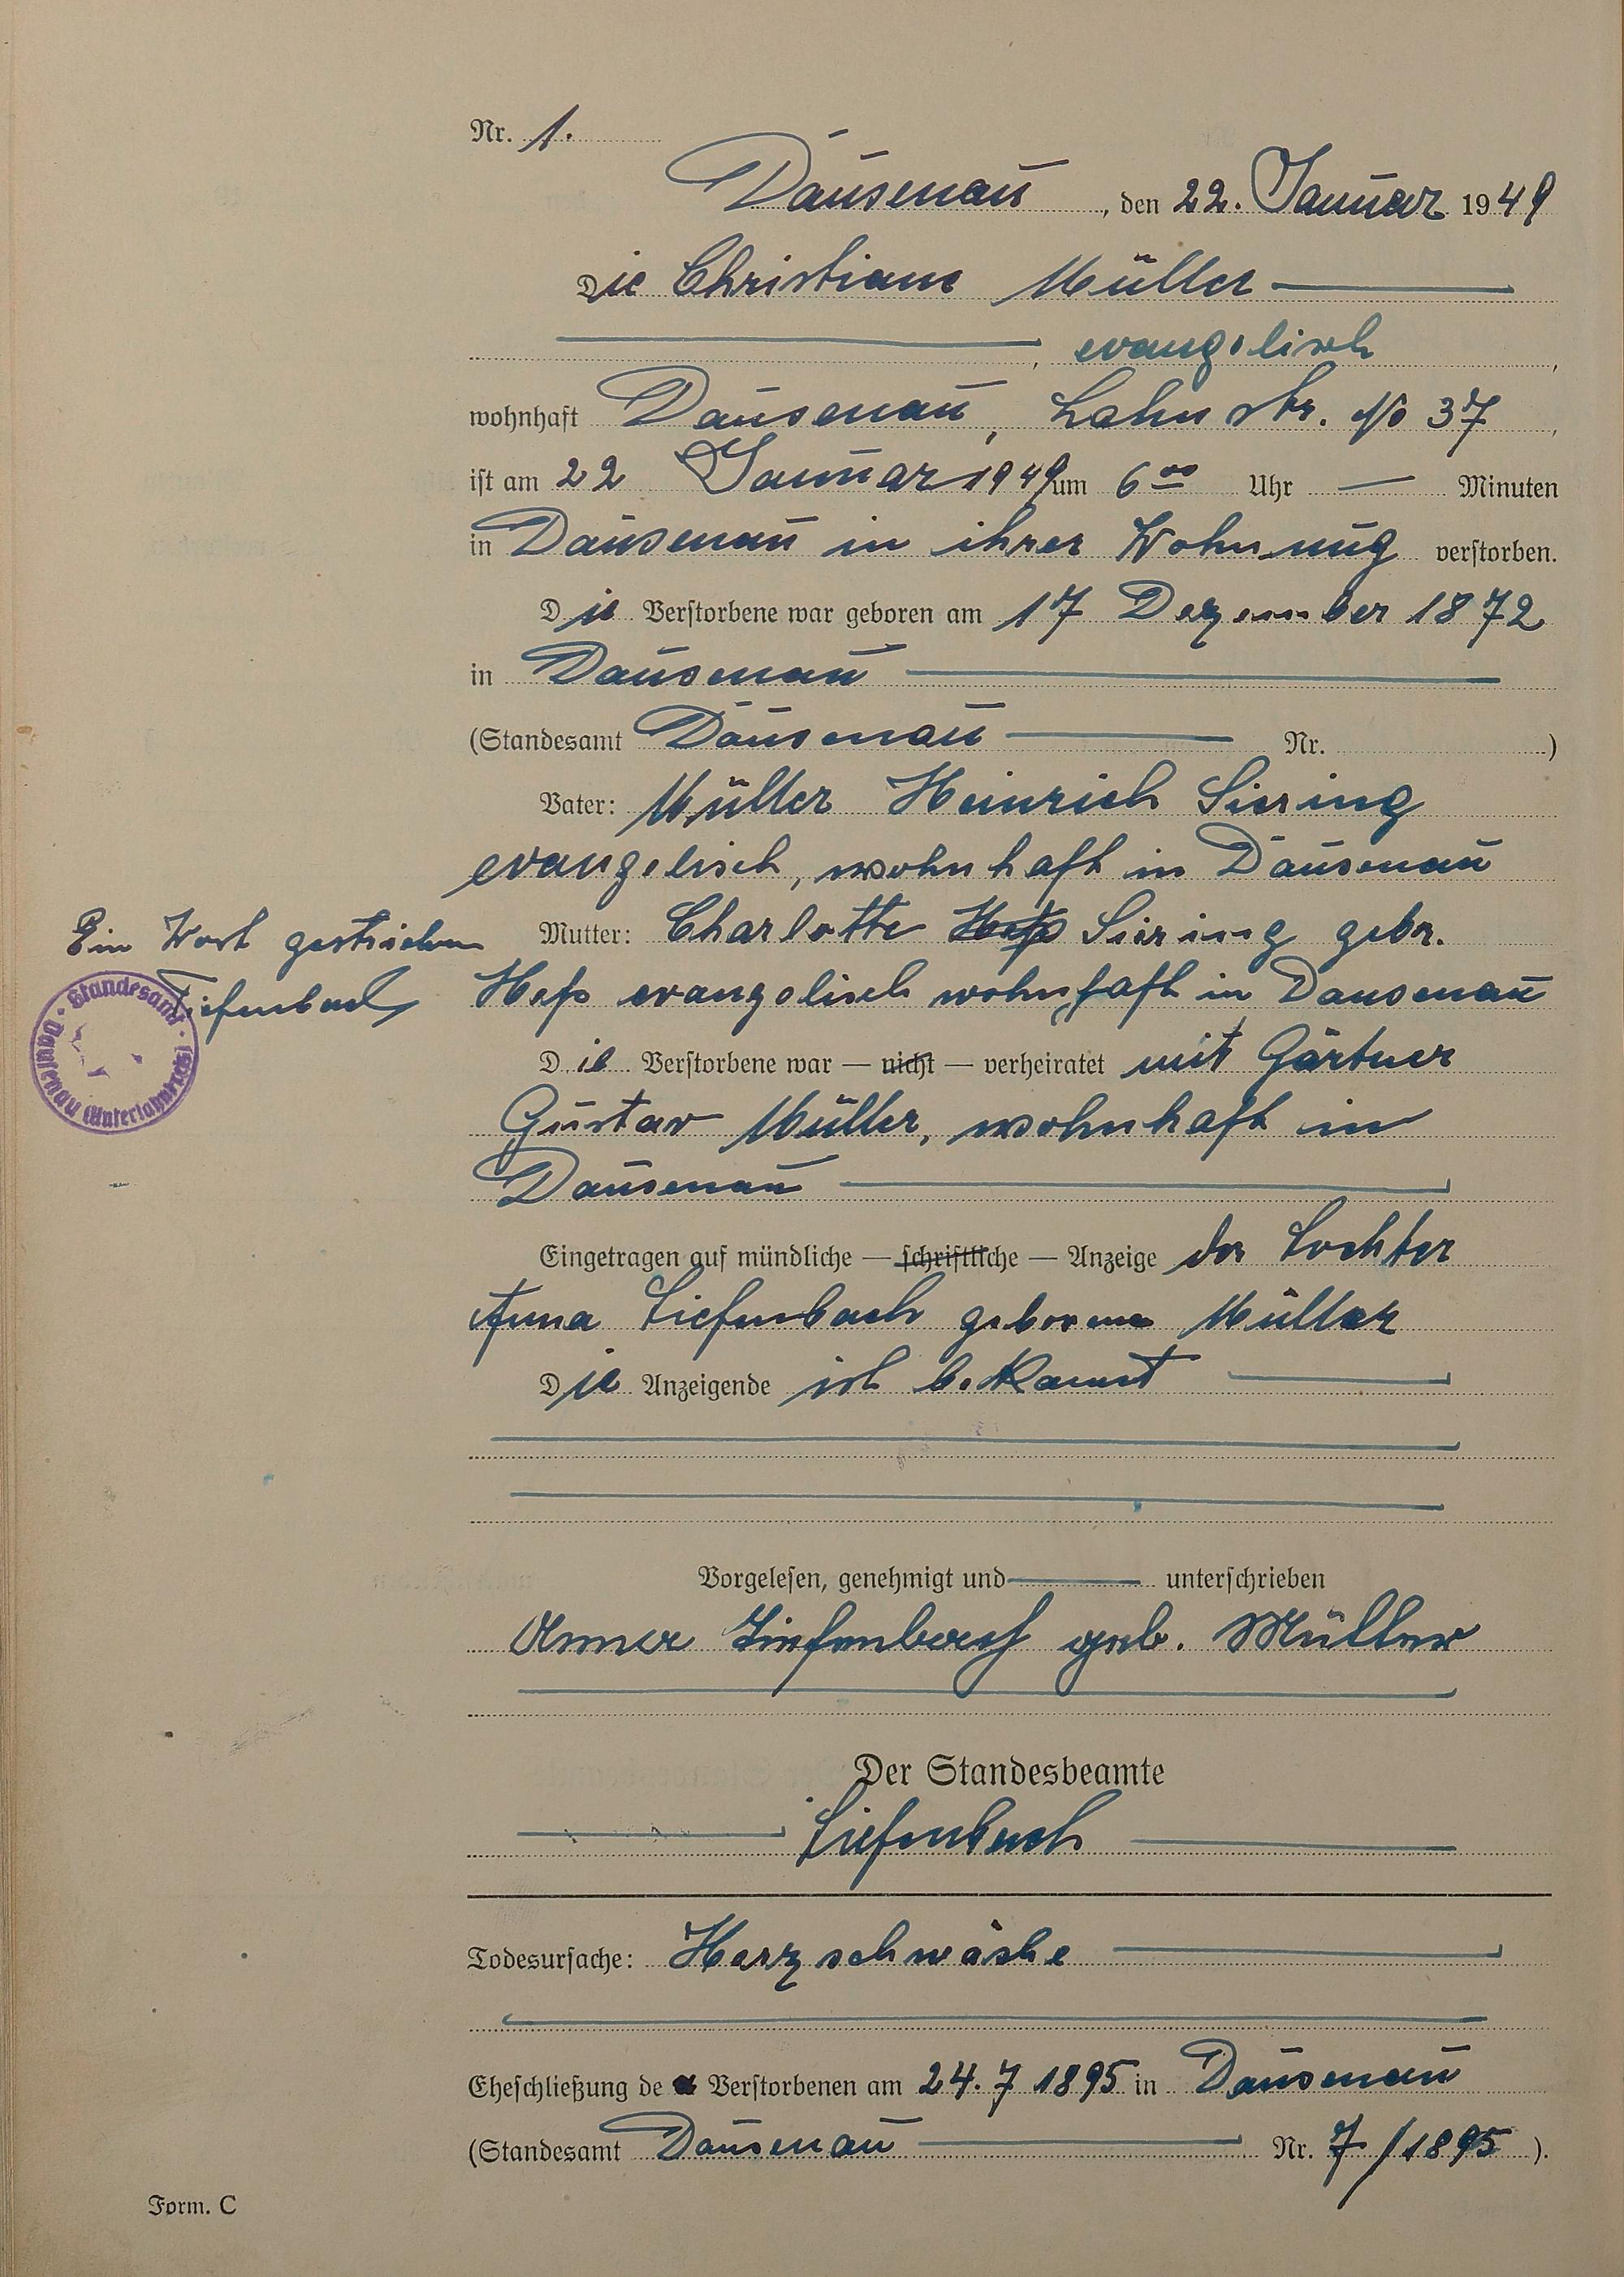 Nr. 1.
Dausenau, den 22. Januar 1949
Die Christiane Müller
, evangelisch,
wohnhaft Dausenau, Lahnstr. No 37,
ist am 22 Januar 1949 um 6⁰⁰ Uhr — Minuten
in Dausenau in ihrer Wohnung verstorben.
Die Verstorbene war geboren am 17 Dezember 1872
in Dausenau
(Standesamt Dausenau Nr. )
Vater: Müller Heinrich Siering
evangelisch, wohnhaft in Dausenau
Mutter: Charlotte Heß Siering gebr.
Heß evangelisch wohnhaft in Dausenau
Ein Wort gestrichen
Tiefenbach
Standesamt Dausenau (Unterlahnkreis)
Die Verstorbene war — nicht — verheiratet mit Gärtner
Gustav Müller, wohnhaft in
Dausenau
Eingetragen auf mündliche — schriftliche — Anzeige der Tochter
Anna Tiefenbach geborene Müller
Die Anzeigende ist bekannt
Vorgelesen, genehmigt und unterschrieben
Anna Tiefenbach geb. Müller
Der Standesbeamte
Tiefenbach
Todesursache: Herzschwäche
Eheschließung de Verstorbenen am 24. 7 1895 in Dausenau
(Standesamt Dausenau Nr. 7/1895).
Form. C